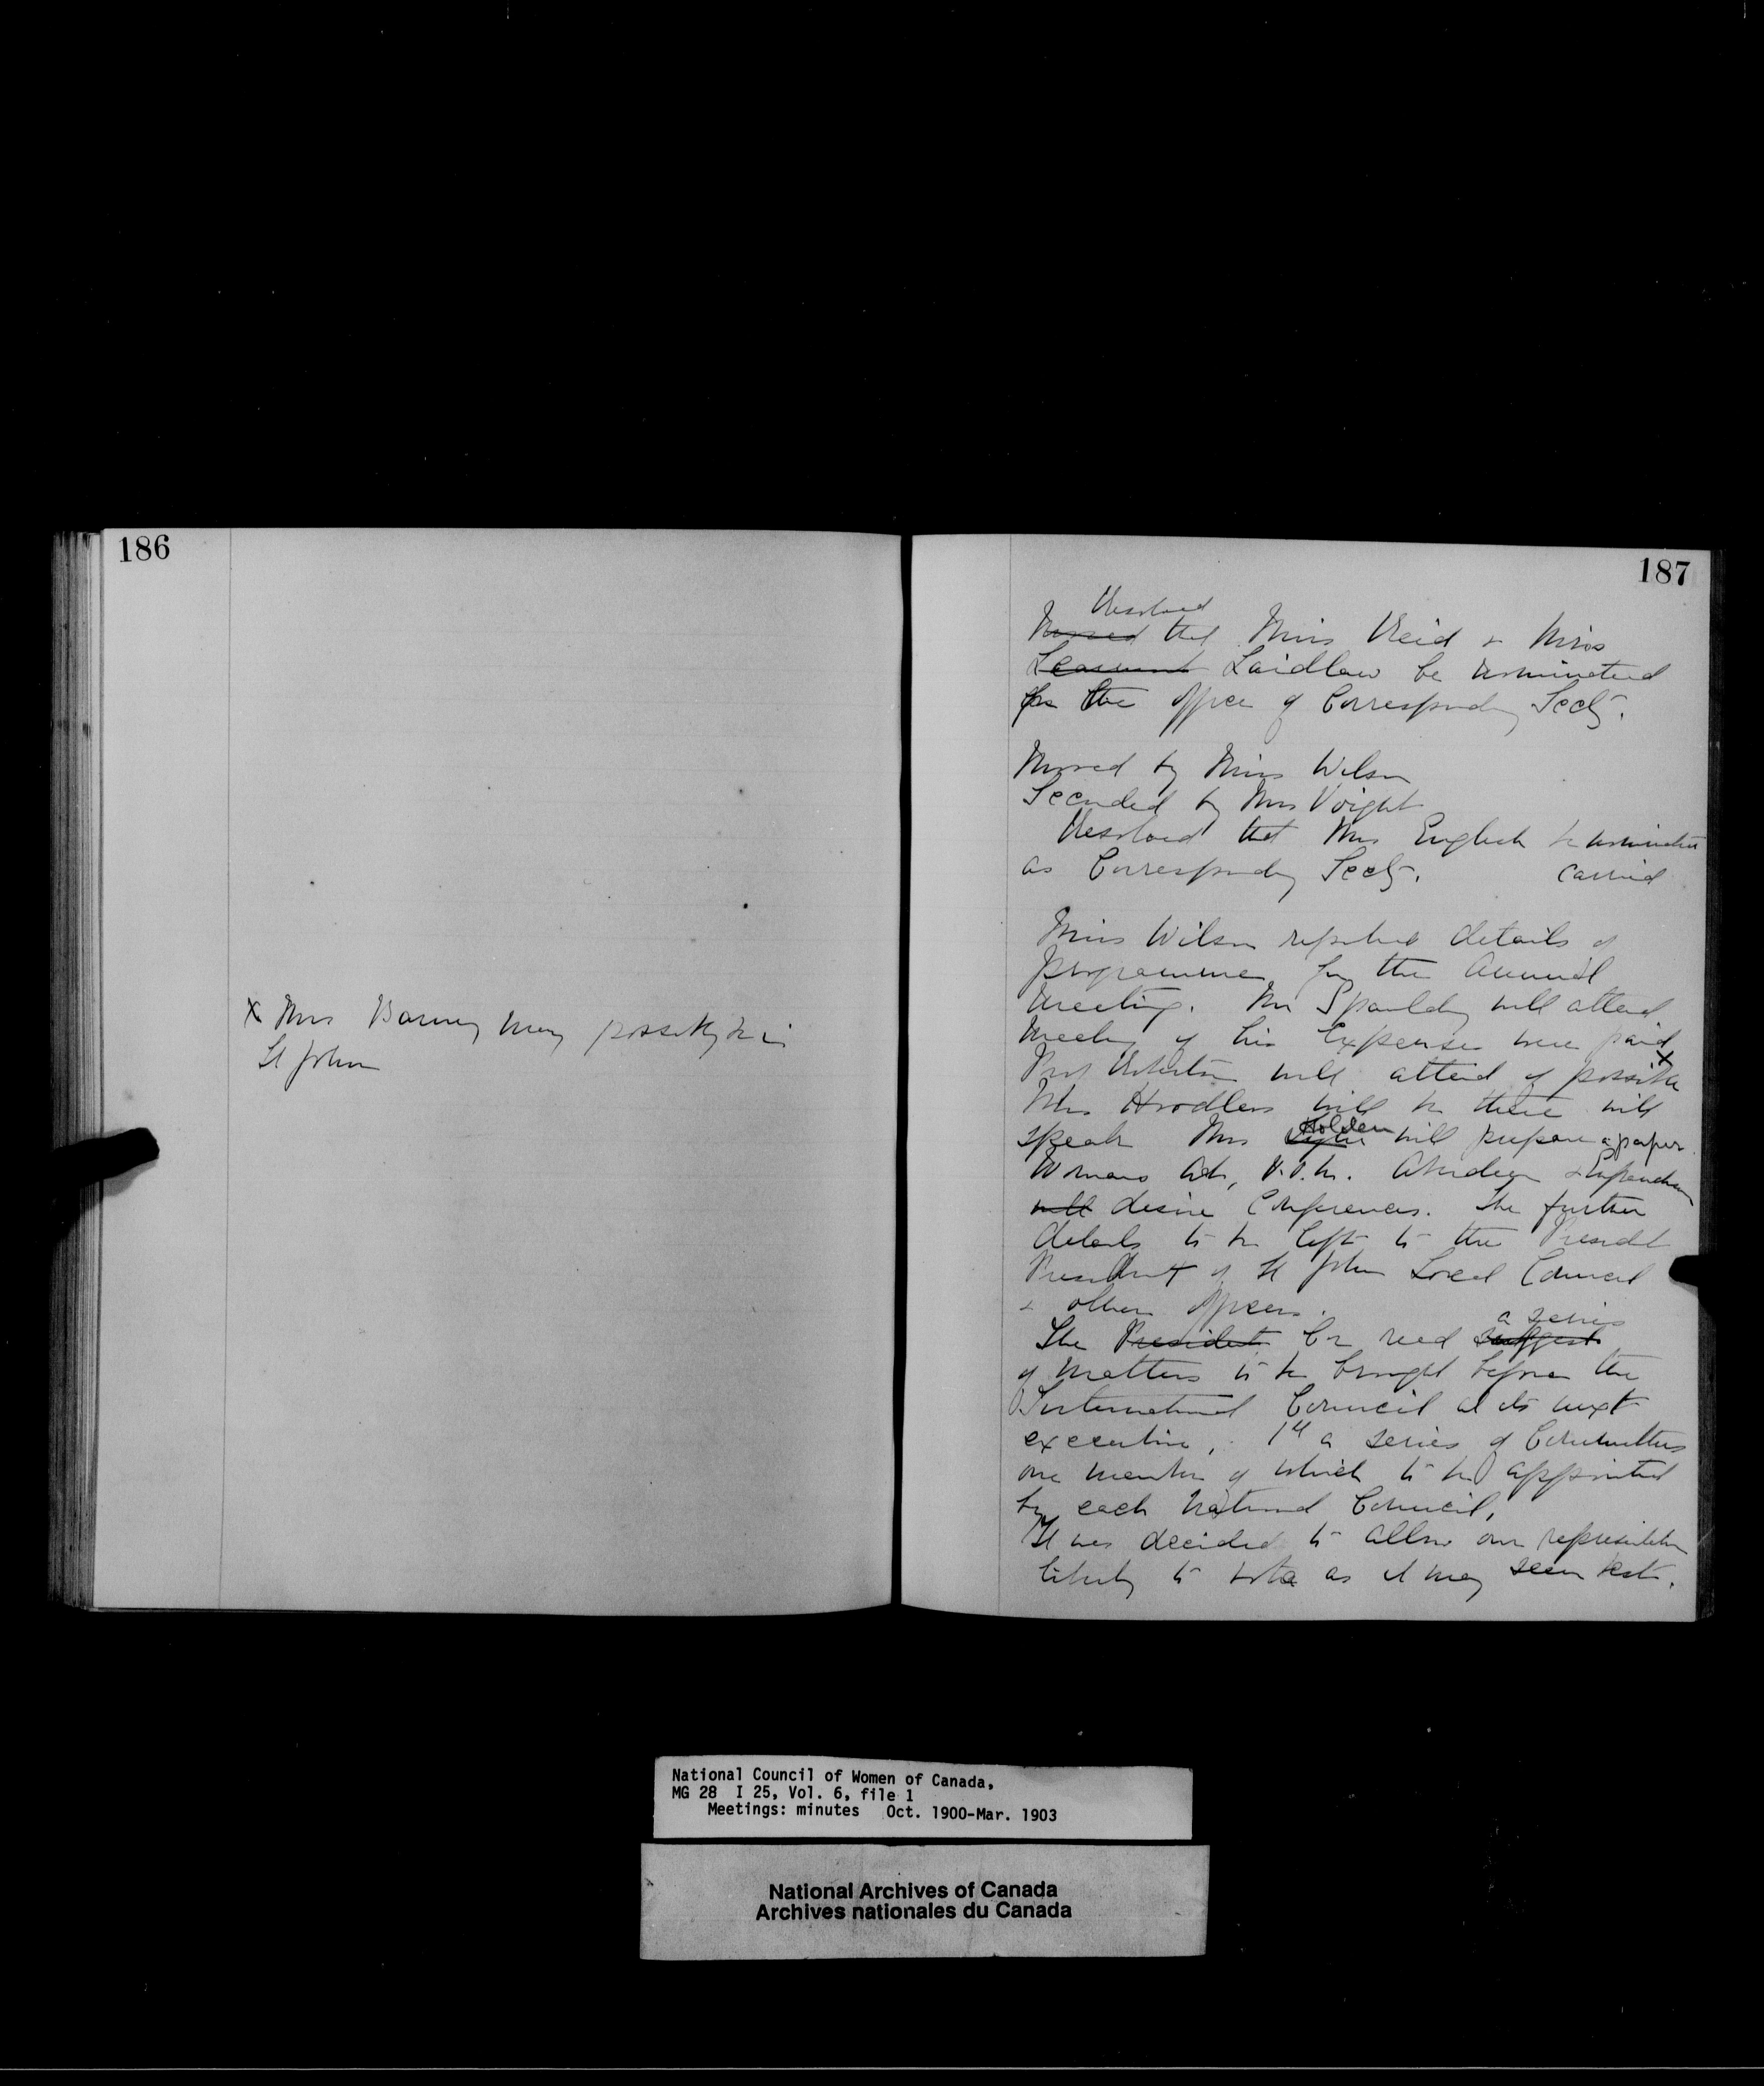 186
x Mrs Barney may possibly be in
St John
187
Resolved
Moved that Miss Reid & Miss
Laidlaw be nominated
for the office of Corresponding Secty.
Moved by Miss Wilson
Seconded by Mrs Voight
Resolved that Mrs English be nominated
as Corresponding Secty. Carried
Miss Wilson reported details of
programme for the Annual
Meeting. Mr Spaulding will attend
Meeting if his Expenses were paid x
Prof Robertson will attend if possible
Mrs Hoodless will be there will
speak Mrs Holden will prepare a paper
Womans Art, V.O.N. Aberdeen &
will desire Conferences. The further
details to be left to the President
President of St John Local Council
& other officers.
a series
The President Cor read suggest
of matters to be brought before the
International Council at its next
executive, 1st a series of Committees
one member of which to be appointed
by each National Council,
It was decided to allow our representative
liberty to vote as it may seem best.
National Council of Women of Canada,
MG 28 I 25, Vol. 6, file 1
Meetings: minutes Oct. 1900-Mar. 1903
National Archives of Canada
Archives nationales du Canada